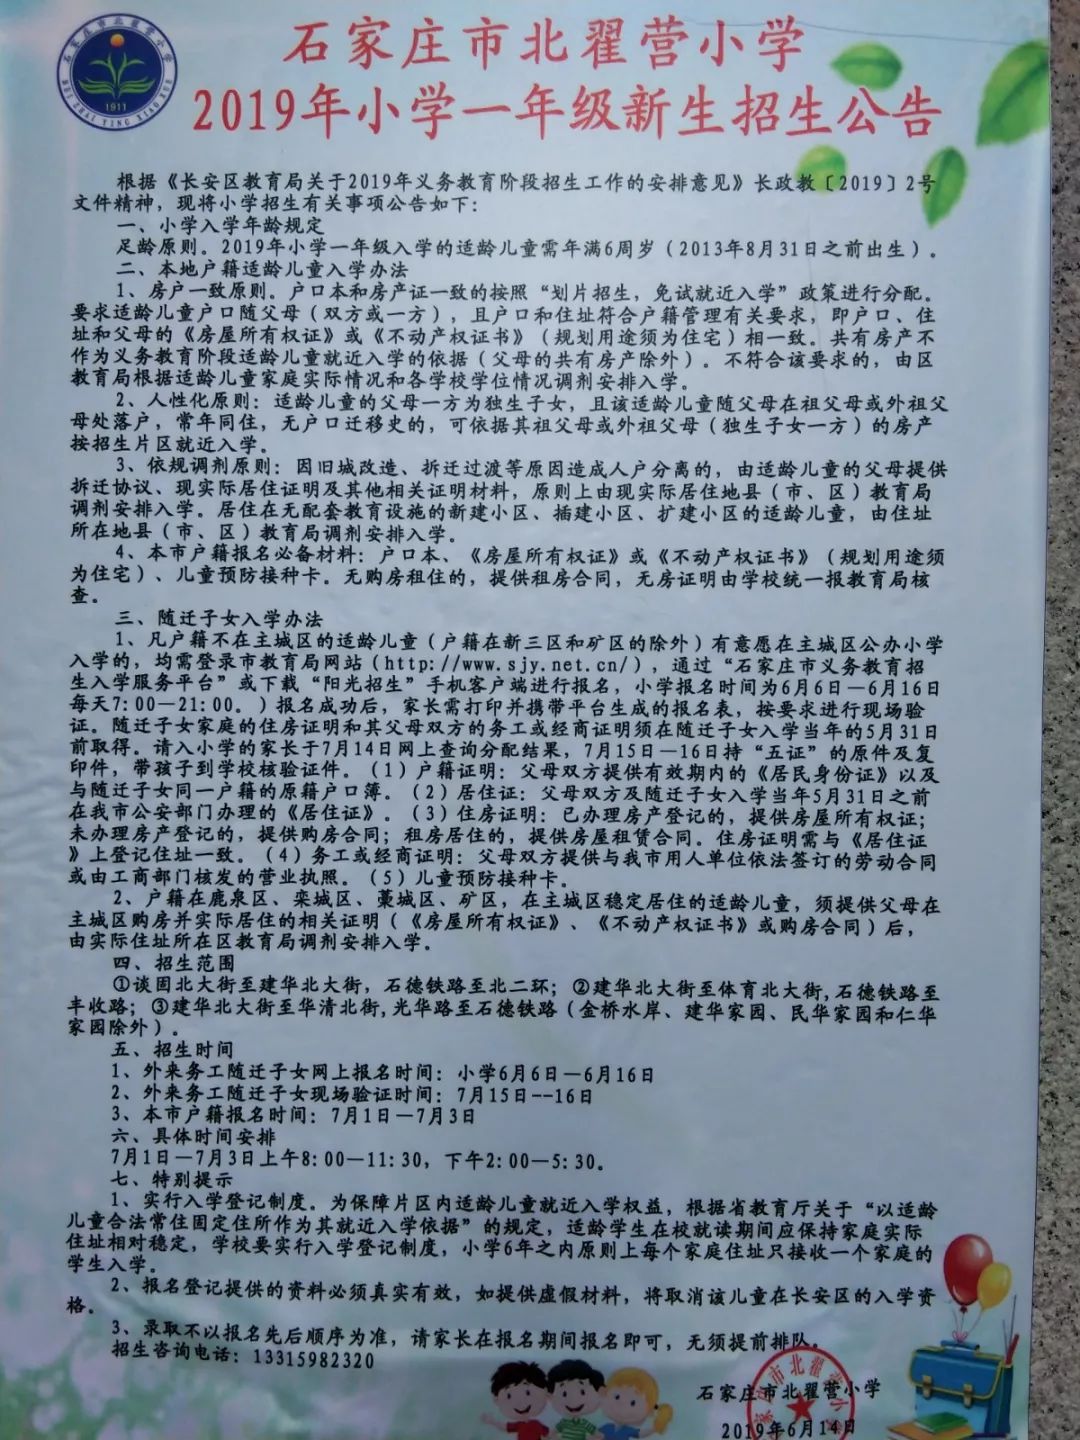 石家庄市北翟营小学
BEI ZHAI YING XIAO XUE
1911
石家庄市北翟营小学
2019年小学一年级新生招生公告
根据《长安区教育局关于2019年义务教育阶段招生工作的安排意见》长政教〔2019〕2号
文件精神，现将小学招生有关事项公告如下：
一、小学入学年龄规定
足龄原则。2019年小学一年级入学的适龄儿童需年满6周岁（2013年8月31日之前出生）。
二、本地户籍适龄儿童入学办法
1、房户一致原则。户口本和房产证一致的按照“划片招生，免试就近入学”政策进行分配。
要求适龄儿童户口随父母（双方或一方），且户口和住址符合户籍管理有关要求，即户口、住
址和父母的《房屋所有权证》或《不动产权证书》（规划用途须为住宅）相一致。共有房产不
作为义务教育阶段适龄儿童就近入学的依据（父母的共有房产除外）。不符合该要求的，由区
教育局根据适龄儿童家庭实际情况和各学校学位情况调剂安排入学。
2、人性化原则：适龄儿童的父母一方为独生子女，且该适龄儿童随父母在祖父母或外祖父
母处落户，常年同住，无户口迁移史的，可依据其祖父母或外祖父母（独生子女一方）的房产
按招生片区就近入学。
3、依规调剂原则：因旧城改造、拆迁过渡等原因造成人户分离的，由适龄儿童的父母提供
拆迁协议、现实际居住证明及其他相关证明材料，原则上由现实际居住地县（市、区）教育局
调剂安排入学。居住在无配套教育设施的新建小区、插建小区、扩建小区的适龄儿童，由住址
所在地县（市、区）教育局调剂安排入学。
4、本市户籍报名必备材料：户口本、《房屋所有权证》或《不动产权证书》（规划用途须
为住宅）、儿童预防接种卡。无购房租住的，提供租房合同，无房证明由学校统一报教育局核
查。
三、随迁子女入学办法
1、凡户籍不在主城区的适龄儿童（户籍在新三区和矿区的除外）有意愿在主城区公办小学
入学的，均需登录市教育局网站（http://www.sjy.net.cn/），通过“石家庄市义务教育招
生入学服务平台”或下载“阳光招生”手机客户端进行报名，小学报名时间为6月6日—6月16日
每天7：00—21：00。）报名成功后，家长需打印并携带平台生成的报名表，按要求进行现场验
证。随迁子女家庭的住房证明和其父母双方的务工或经商证明须在随迁子女入学当年的5月31日
前取得。请入小学的家长于7月14日网上查询分配结果，7月15日—16日持“五证”的原件及复
印件，带孩子到学校核验证件。（1）户籍证明：父母双方提供有效期内的《居民身份证》以及
与随迁子女同一户籍的原籍户口簿。（2）居住证：父母双方及随迁子女入学当年5月31日之前
在我市公安部门办理的《居住证》。（3）住房证明：已办理房产登记的，提供房屋所有权证；
未办理房产登记的，提供购房合同；租房居住的，提供房屋租赁合同。住房证明需与《居住证
》上登记住址一致。（4）务工或经商证明：父母双方提供与我市用人单位依法签订的劳动合同
或由工商部门核发的营业执照。（5）儿童预防接种卡。
2、户籍在鹿泉区、栾城区、藁城区、矿区，在主城区稳定居住的适龄儿童，须提供父母在
主城区购房并实际居住的相关证明（《房屋所有权证》、《不动产权证书》或购房合同）后，
由实际住址所在区教育局调剂安排入学。
四、招生范围
①谈固北大街至建华北大街，石德铁路至北二环；②建华北大街至体育北大街,石德铁路至
丰收路；③建华北大街至华清北街,光华路至石德铁路（金桥水岸、建华家园、民华家园和仁华
家园除外）。
五、招生时间
1、外来务工随迁子女网上报名时间：小学6月6日—6月16日
2、外来务工随迁子女现场验证时间：7月15日--16日
3、本市户籍报名时间：7月1日—7月3日
六、具体时间安排
7月1日—7月3日上午8：00—11：30，下午2：00—5：30。
七、特别提示
1、实行入学登记制度。为保障片区内适龄儿童就近入学权益，根据省教育厅关于“以适龄
儿童合法常住固定住所作为其就近入学依据”的规定，适龄学生在校就读期间应保持家庭实际
住址相对稳定，学校要实行入学登记制度，小学6年之内原则上每个家庭住址只接收一个家庭的
学生入学。
2、报名登记提供的资料必须真实有效，如提供虚假材料，将取消该儿童在长安区的入学资
格。
3、录取不以报名先后顺序为准，请家长在报名期间报名即可，无须提前排队。
招生咨询电话：13315982320
石家庄市北翟营小学
2019年6月14日